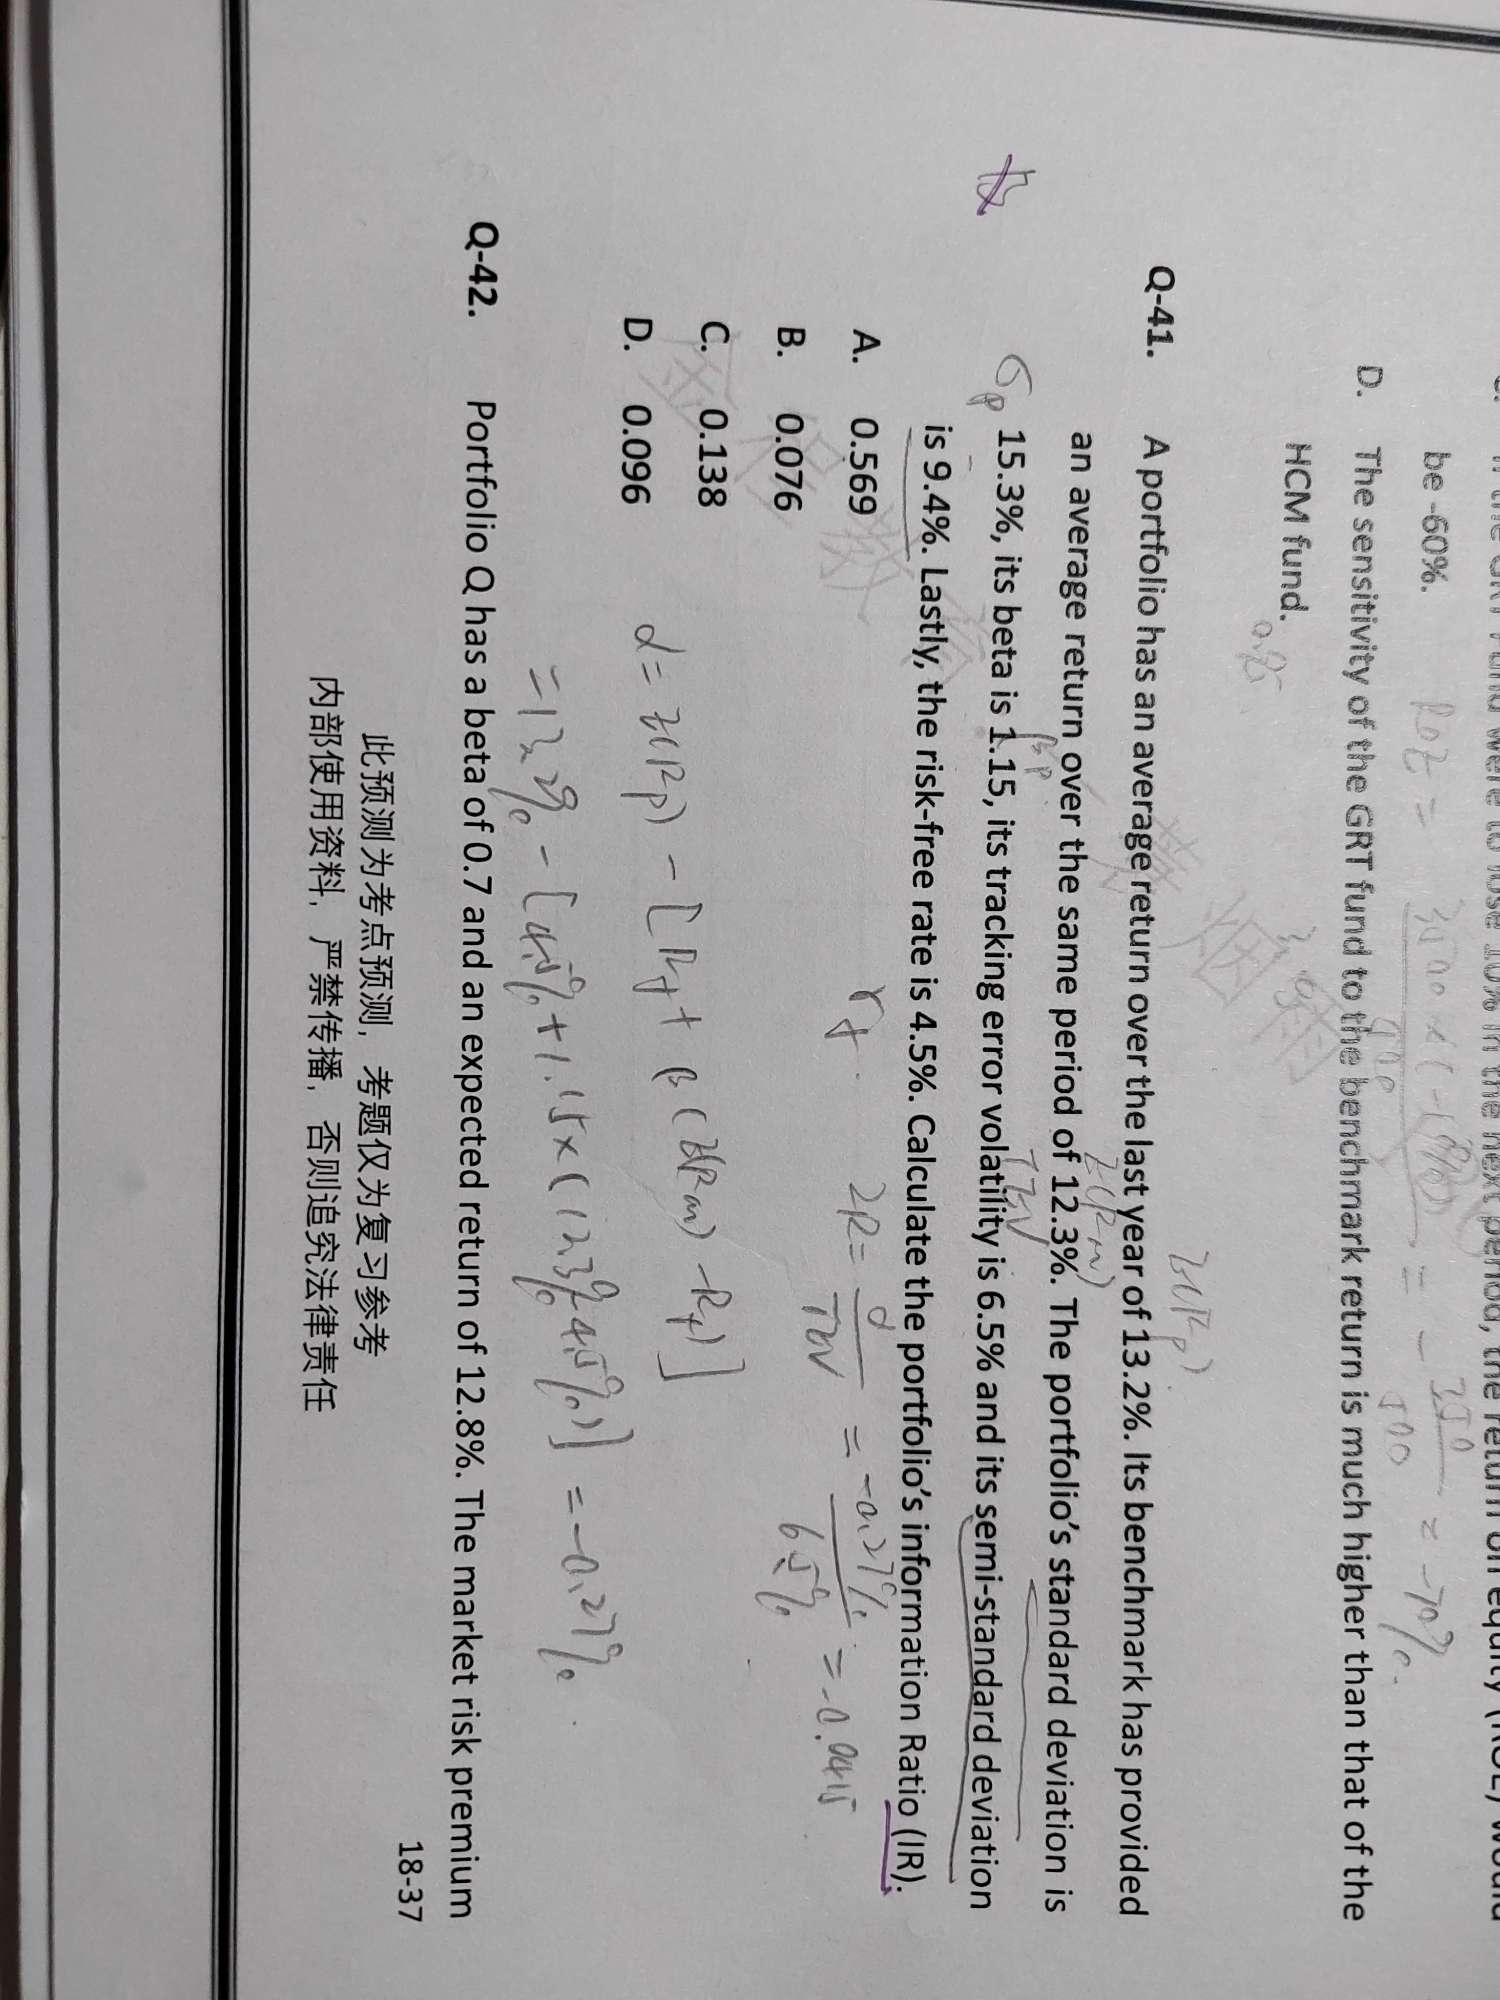 be -60%.
D. The sensitivity of the GRT fund to the benchmark return is much higher than that of the
HCM fund.
Q-41. A portfolio has an average return over the last year of 13.2%. Its benchmark has provided
an average return over the same period of 12.3%. The portfolio's standard deviation is
15.3%, its beta is 1.15, its tracking error volatility is 6.5% and its semi-standard deviation
is 9.4%. Lastly, the risk-free rate is 4.5%. Calculate the portfolio's information Ratio (IR).
A. 0.569
B. 0.076
C. 0.138
D. 0.096
σp
βp
E(Rm)
TEV
E(Rp)
rf
IR = α / TEV = -0.27% / 6.5% = -0.0415
α = E(Rp) - [Rf + β(E(Rm) - Rf)]
= 13.2% - [4.5% + 1.15 × (12.3% - 4.5%)] = -0.27%
Q-42. Portfolio Q has a beta of 0.7 and an expected return of 12.8%. The market risk premium
18-37
此预测为考点预测，考题仅为复习参考
内部使用资料，严禁传播，否则追究法律责任